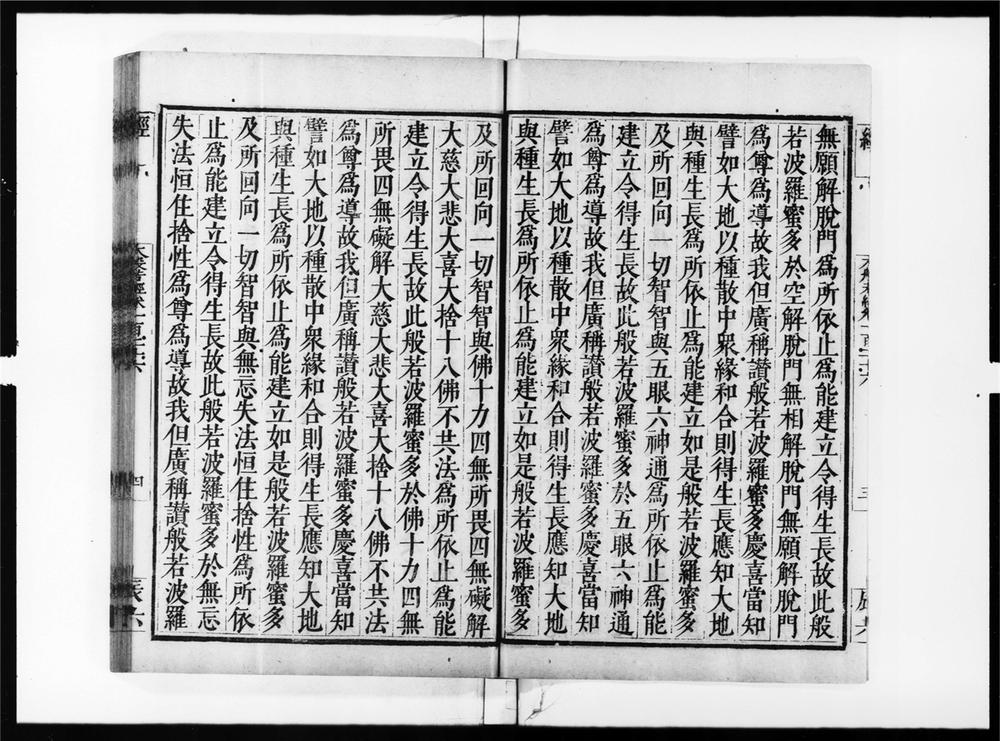 無願解脫門爲所依止爲能建立令得生長故此般
若波羅蜜多於空解脫門無相解脫門無願解脫門
爲尊爲導故我但廣稱讚般若波羅蜜多慶喜當知
譬如大地以種散中衆緣和合則得生長應知大地
與種生長爲所依止爲能建立如是般若波羅蜜多
及所回向一切智智與五眼六神通爲所依止爲能
建立令得生長故此般若波羅蜜多於五眼六神通
爲尊爲導故我但廣稱讚般若波羅蜜多慶喜當知
譬如大地以種散中衆緣和合則得生長應知大地
與種生長爲所依止爲能建立如是般若波羅蜜多
及所回向一切智智與佛十力四無所畏四無礙解
大慈大悲大喜大捨十八佛不共法爲所依止爲能
建立令得生長故此般若波羅蜜多於佛十力四無
所畏四無礙解大慈大悲大喜大捨十八佛不共法
爲尊爲導故我但廣稱讚般若波羅蜜多慶喜當知
譬如大地以種散中衆緣和合則得生長應知大地
與種生長爲所依止爲能建立如是般若波羅蜜多
及所回向一切智智與無忘失法恒住捨性爲所依
止爲能建立令得生長故此般若波羅蜜多於無忘
失法恒住捨性爲尊爲導故我但廣稱讚般若波羅
經
四